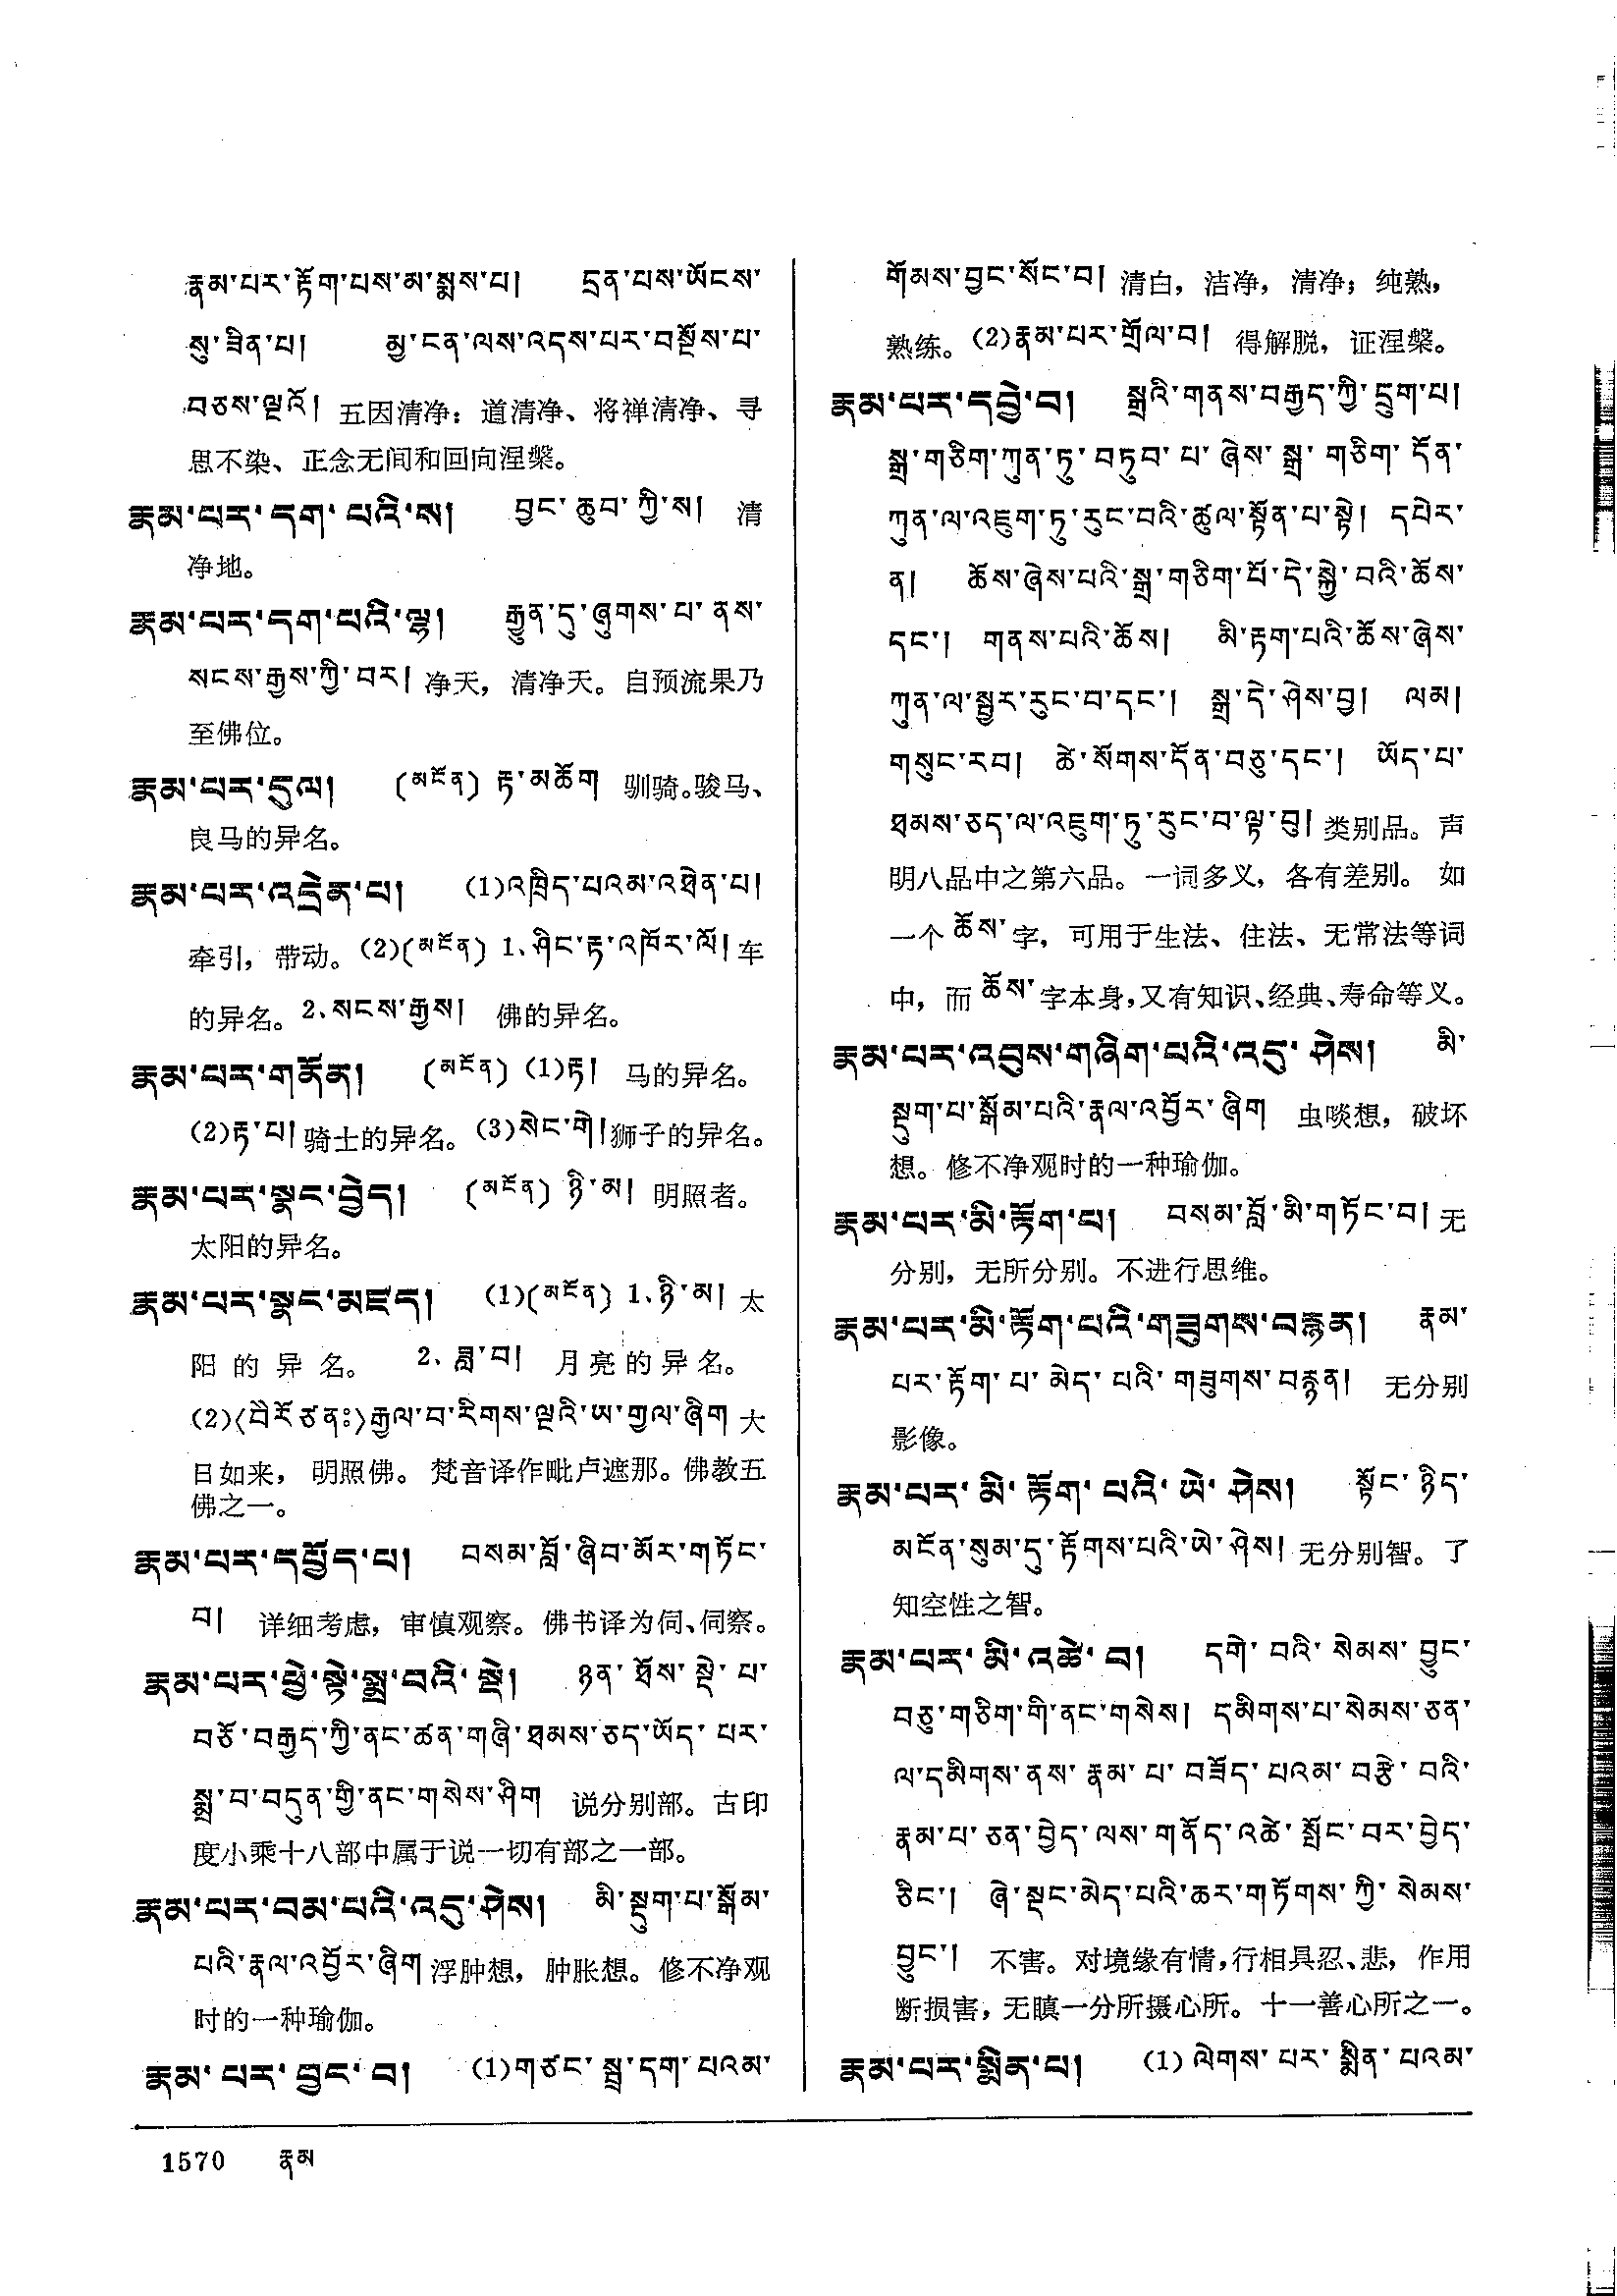 རྣམ་པར་རྟོག་པས་མ་སྨས་པ། དྲན་པས་ཡོངས་
སུ་ཟིན་པ། མྱ་ངན་ལས་འདས་པར་བསྔོས་པ་
བཅས་ལྔའོ། 五因清净：道清净、将禅清净、寻
思不染、正念无间和回向涅槃。
རྣམ་པར་དག་པའི་ས། བྱང་ཆུབ་ཀྱི་ས། 清
净地。
རྣམ་པར་དག་པའི་ལྷ། རྒྱུན་དུ་ཞུགས་པ་ནས་
སངས་རྒྱས་ཀྱི་བར། 净天，清净天。自预流果乃
至佛位。
རྣམ་པར་དུལ། (མངོན) རྟ་མཆོག 驯骑。骏马、
良马的异名。
རྣམ་པར་འདྲེན་པ། (1)འཁྲིད་པའམ་འཐེན་པ།
牵引，带动。(2)(མངོན) 1.ཤིང་རྟ་འཁོར་ལོ། 车
的异名。2.སངས་རྒྱས། 佛的异名。
རྣམ་པར་གནོན། (མངོན) (1)རྟ། 马的异名。
(2)རྟ་པ། 骑士的异名。(3)སེང་གེ། 狮子的异名。
རྣམ་པར་སྣང་བྱེད། (མངོན) ཉི་མ། 明照者。
太阳的异名。
རྣམ་པར་སྣང་མཛད། (1)(མངོན) 1.ཉི་མ། 太
阳的异名。 2.ཟླ་བ། 月亮的异名。
(2)〈བེེརོཙནཿ〉རྒྱལ་བ་རིགས་ལྔའི་ཡ་གྱལ་ཞིག 大
日如来，明照佛。梵音译作毗卢遮那。佛教五
佛之一。
རྣམ་པར་དཔྱོད་པ། བསམ་བློ་ཞིབ་མོར་གཏོང་
བ། 详细考虑，审慎观察。佛书译为伺、伺察。
རྣམ་པར་ཕྱེ་སྟེ་སྨྲ་བའི་སྡེ། ཉན་ཐོས་སྡེ་པ་
བཅོ་བརྒྱད་ཀྱི་ནང་ཚན་གཞི་ཐམས་ཅད་ཡོད་པར་
སྨྲ་བ་བདུན་གྱི་ནང་གསེས་ཤིག 说分别部。古印
度小乘十八部中属于说一切有部之一部。
རྣམ་པར་བམ་པའི་འདུ་ཤེས། མི་སྡུག་པ་སྒོམ་
པའི་རྣལ་འབྱོར་ཞིག 浮肿想，肿胀想。修不净观
时的一种瑜伽。
རྣམ་པར་བྱང་བ། (1)གཙང་སྦྲ་དག་པའམ་
གོམས་བྱང་སོང་བ། 清白，洁净，清净；纯熟，
熟练。(2)རྣམ་པར་གྲོལ་བ། 得解脱，证涅槃。
རྣམ་པར་དབྱེ་བ། སྒྲའི་གནས་བརྒྱད་ཀྱི་དྲུག་པ།
སྒྲ་གཅིག་ཀུན་ཏུ་བཏུབ་པ་ཞེས་སྒྲ་གཅིག་དོན་
ཀུན་ལ་འཇུག་ཏུ་རུང་བའི་ཚུལ་སྟོན་པ་སྟེ། དཔེར་
ན། ཆོས་ཞེས་པའི་སྒྲ་གཅིག་པོ་དེ་སྐྱེ་བའི་ཆོས་
དང་། གནས་པའི་ཆོས། མི་རྟག་པའི་ཆོས་ཞེས་
ཀུན་ལ་སྦྱར་རུང་བ་དང་། སྒྲ་དེ་ཤེས་བྱ། ལམ།
གསུང་རབ། ཚེ་སོགས་དོན་བཅུ་དང་། ཡོད་པ་
ཐམས་ཅད་ལ་འཇུག་ཏུ་རུང་བ་ལྟ་བུ། 类别品。声
明八品中之第六品。一词多义，各有差别。如
一个ཆོས་字，可用于生法、住法、无常法等词
中，而ཆོས་字本身，又有知识、经典、寿命等义。
རྣམ་པར་འབུས་གཞིག་པའི་འདུ་ཤེས། མི་
སྡུག་པ་སྒོམ་པའི་རྣལ་འབྱོར་ཞིག 虫啖想，破坏
想。修不净观时的一种瑜伽。
རྣམ་པར་མི་རྟོག་པ། བསམ་བློ་མི་གཏོང་བ། 无
分别，无所分别。不进行思维。
རྣམ་པར་མི་རྟོག་པའི་གཟུགས་བརྙན། རྣམ་
པར་རྟོག་པ་མེད་པའི་གཟུགས་བརྙན། 无分别
影像。
རྣམ་པར་མི་རྟོག་པའི་ཡེ་ཤེས། སྟོང་ཉིད་
མངོན་སུམ་དུ་རྟོགས་པའི་ཡེ་ཤེས། 无分别智。了
知空性之智。
རྣམ་པར་མི་འཚེ་བ། དགེ་བའི་སེམས་བྱུང་
བཅུ་གཅིག་གི་ནང་གསེས། དམིགས་པ་སེམས་ཅན་
ལ་དམིགས་ནས་རྣམ་པ་བཟོད་པའམ་བརྩེ་བའི་
རྣམ་པ་ཅན་བྱེད་ལས་གནོད་འཚེ་སྤོང་བར་བྱེད་
ཅིང་། ཞེ་སྡང་མེད་པའི་ཆར་གཏོགས་ཀྱི་སེམས་
བྱུང་། 不害。对境缘有情，行相具忍、悲，作用
断损害，无瞋一分所摄心所。十一善心所之一。
རྣམ་པར་སྨིན་པ། (1)ལེགས་པར་སྨིན་པའམ་
1570 རྣམ